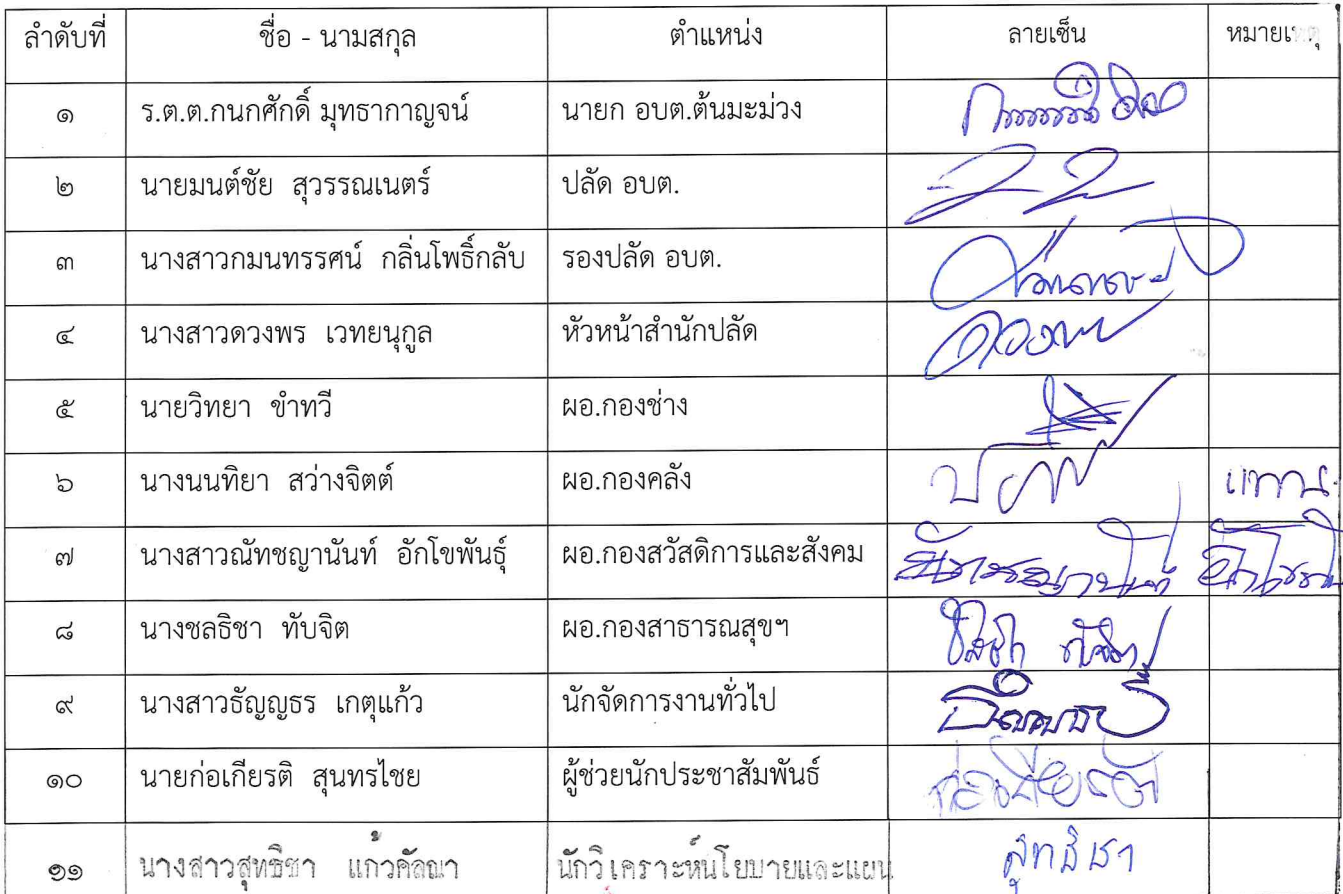 ลำดับที่ ชื่อ - นามสกุล ตำแหน่ง ลายเซ็น หมายเหตุ
๑ ร.ต.ต.กนกศักดิ์ มุทธากาญจน์ นายก อบต.ต้นมะม่วง
๒ นายมนต์ชัย สุวรรณเนตร์ ปลัด อบต.
๓ นางสาวกมนทรรศน์ กลิ่นโพธิ์กลับ รองปลัด อบต.
๔ นางสาวดวงพร เวทยนุกูล หัวหน้าสำนักปลัด ดวงพร
๕ นายวิทยา ขำทวี ผอ.กองช่าง
๖ นางนนทิยา สว่างจิตต์ ผอ.กองคลัง แทน
๗ นางสาวณัทชญานันท์ อักโขพันธุ์ ผอ.กองสวัสดิการและสังคม
๘ นางชลธิชา ทับจิต ผอ.กองสาธารณสุขฯ
๙ นางสาวธัญญธร เกตุแก้ว นักจัดการงานทั่วไป
๑๐ นายก่อเกียรติ สุนทรไชย ผู้ช่วยนักประชาสัมพันธ์ ก่อเกียรติ
๑๑ นางสาวสุทธิชา แก้วคัลณา นักวิเคราะห์นโยบายและแผน สุทธิชา